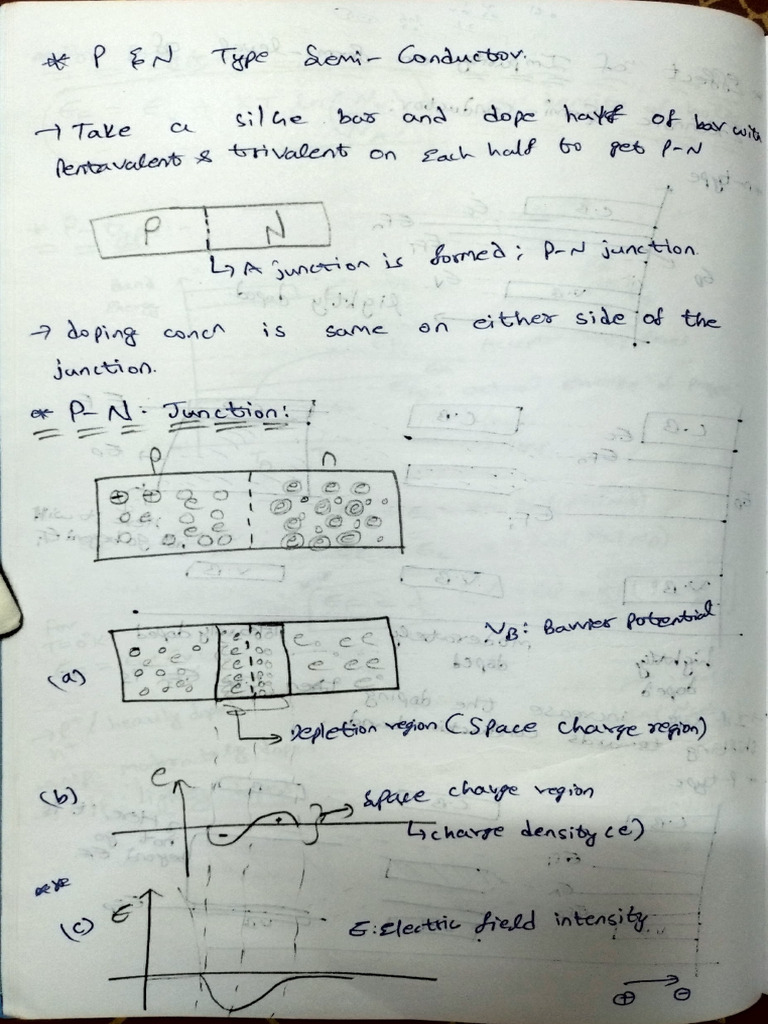 * P & N Type Semi-Conductor.
→ Take a si/Ge bar and dope half of bar with
Pentavalent & trivalent on each half to get P-N
P N
↳ A junction is formed; P-N junction.
→ doping concn is same on either side of the
junction.
* P-N- Junction:
P n
VB: Barrier potential
(a)
→ Depletion region (Space charge region)
(b) e → Space charge region
- +
↳ charge density (e)
**
(c) E E: Electric field intensity
⊕ → ⊖